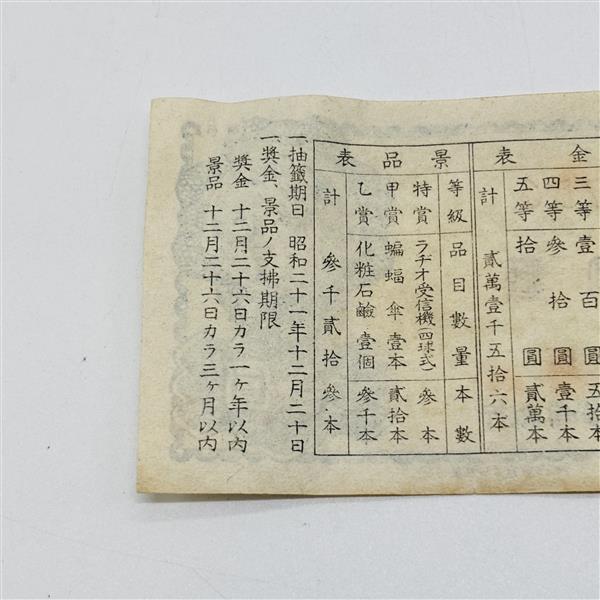 金表
三等 壹百圓 五拾本
四等 參拾圓 壹千本
五等 拾圓 貳萬本
計 貳萬壹千五拾六本
景品表
等級 品目數量 本數
特賞 ラヂオ受信機(四球式) 參本
甲賞 蝙蝠傘壹本 貳拾本
乙賞 化粧石鹼壹個 參千本
計 參千貳拾參本
一、抽籤期日 昭和二十一年十二月二十日
一、獎金、景品ノ支拂期限
獎金 十二月二十六日カラ一ヶ年以内
景品 十二月二十六日カラ三ヶ月以内